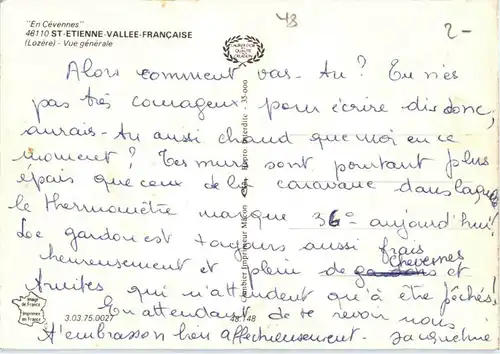 "En Cévennes"
48110 ST-ETIENNE-VALLEE-FRANÇAISE
(Lozère) - Vue générale
48
2-
LAURIER D'OR
QUALITE
CREATION
Alors comment vas-tu ? Tu n'es
pas très courageux pour écrire dis donc,
aurais-tu aussi chaud que moi en ce
moment ? Tes murs sont pourtant plus
épais que ceux de la caravane dans laquelle
le thermomètre marque 36° aujourd'hui
Le gardon est toujours aussi frais
heureusement et plein de chevesnes et
truites qui n'attendent qu'à être pêchés!
En attendant de te revoir nous
t'embrasson bien affectueusement. Jacqueline
Combier Imprimeur Mâcon
Repro Interdite - 35-000
Image
de France
Imprimée
en France
3.03.75.0027
48.148